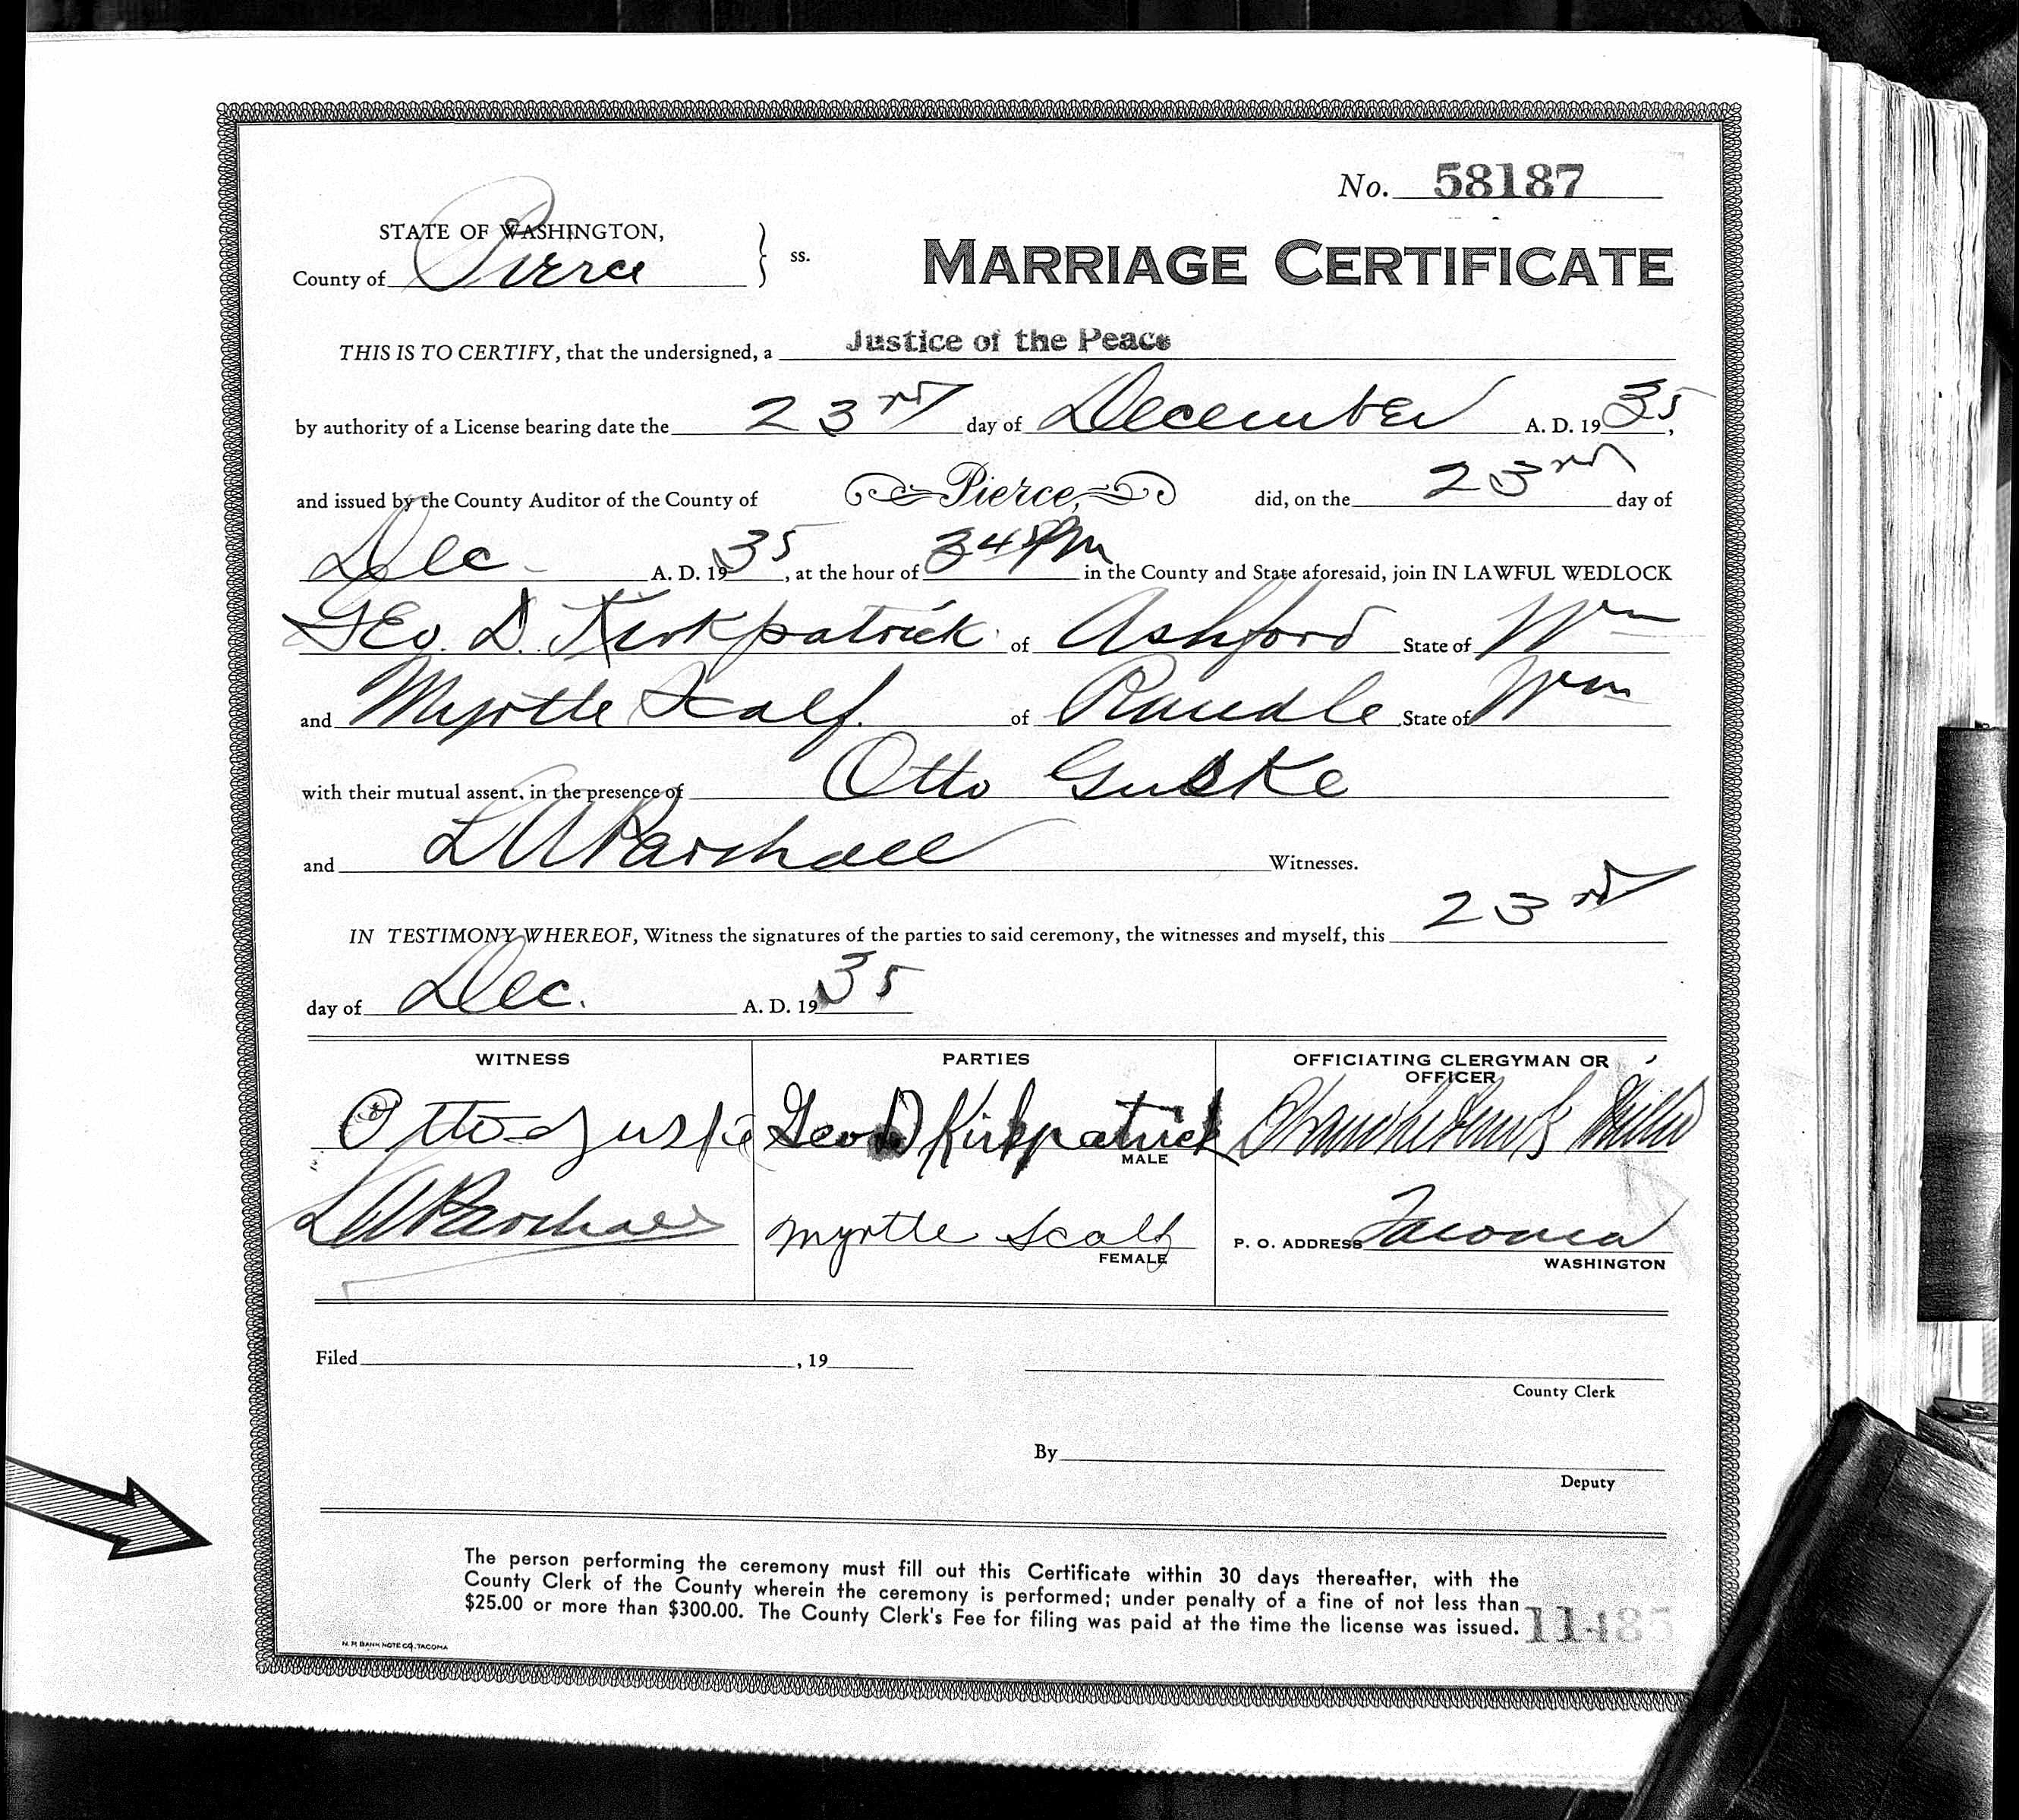 No. 58187
STATE OF WASHINGTON,
County of Pierce } ss.
MARRIAGE CERTIFICATE
THIS IS TO CERTIFY, that the undersigned, a Justice of the Peace
by authority of a License bearing date the 23rd day of December A. D. 1935,
and issued by the County Auditor of the County of Pierce, did, on the 23rd day of
Dec. A. D. 1935, at the hour of 345 PM in the County and State aforesaid, join IN LAWFUL WEDLOCK
Geo. D. Kirkpatrick of Ashford State of Wn
and Myrtle Scalf. of Randle State of Wn
with their mutual assent, in the presence of Otto Guske
and L A Parshall Witnesses.
IN TESTIMONY WHEREOF, Witness the signatures of the parties to said ceremony, the witnesses and myself, this 23rd
day of Dec. A. D. 1935
WITNESS PARTIES OFFICIATING CLERGYMAN OR
OFFICER
Otto Guske Geo D Kirkpatrick
MALE
L A Parshall Myrtle Scalf P. O. ADDRESS Tacoma
FEMALE WASHINGTON
Filed , 19
County Clerk
By
Deputy
The person performing the ceremony must fill out this Certificate within 30 days thereafter, with the
County Clerk of the County wherein the ceremony is performed; under penalty of a fine of not less than
$25.00 or more than $300.00. The County Clerk's Fee for filing was paid at the time the license was issued.
11485
N. P. BANK NOTE CO., TACOMA